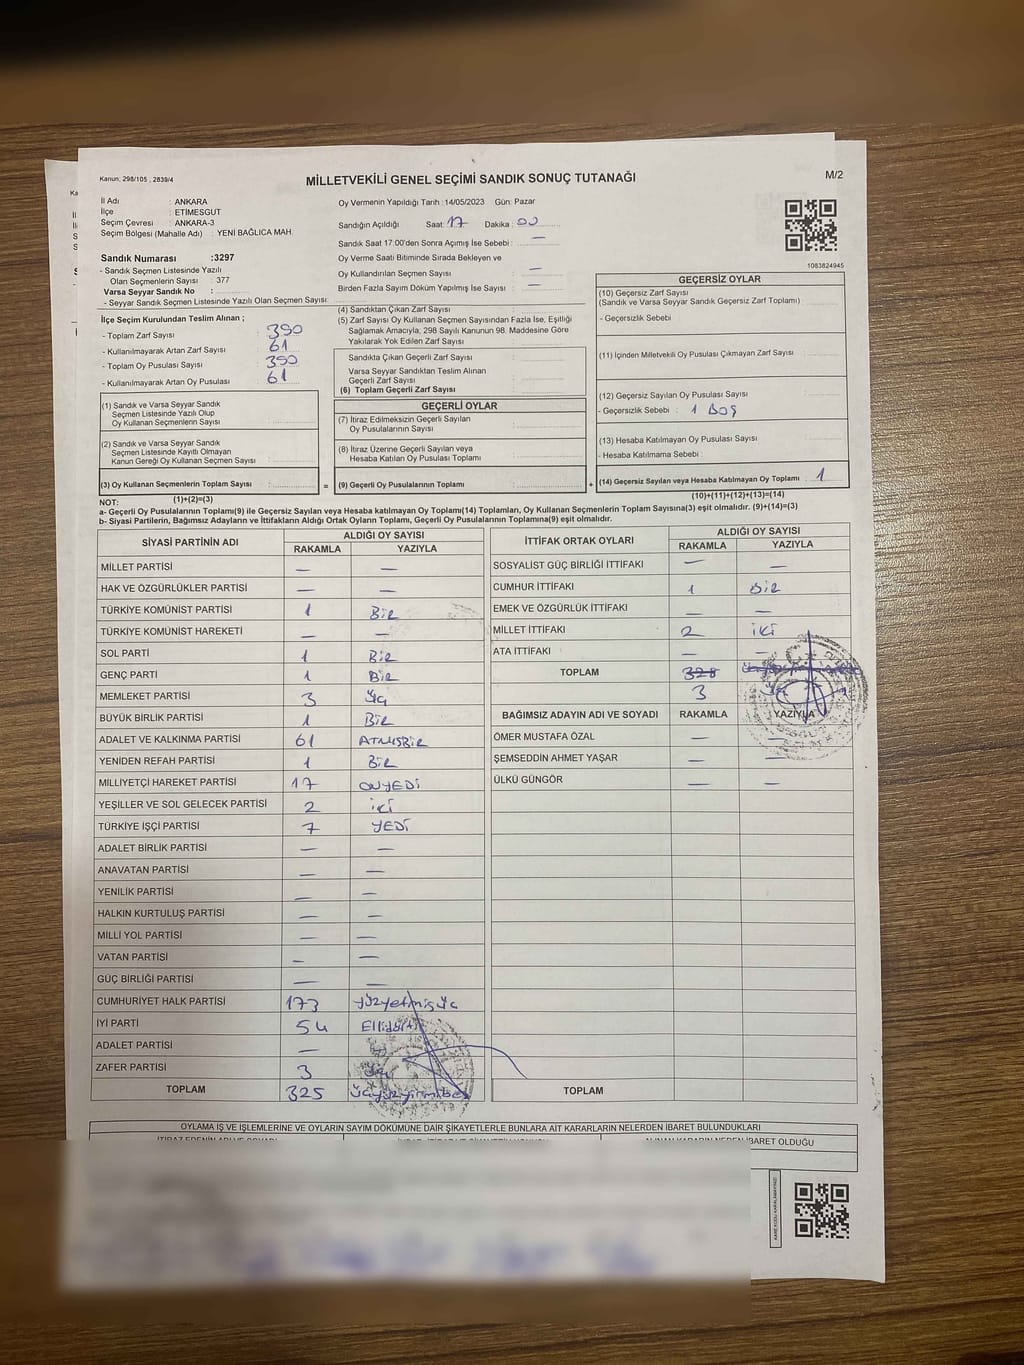 Kanun, 298/105 , 2839/4
MİLLETVEKİLİ GENEL SEÇİMİ SANDIK SONUÇ TUTANAĞI
M/2
İl Adı : ANKARA
İlçe : ETIMESGUT
Seçim Çevresi : ANKARA-3
Seçim Bölgesi (Mahalle Adı) : YENİ BAĞLICA MAH.
Sandık Numarası :3297
- Sandık Seçmen Listesinde Yazılı
Olan Seçmenlerin Sayısı : 377
Varsa Seyyar Sandık No :
- Seyyar Sandık Seçmen Listesinde Yazılı Olan Seçmen Sayısı:
Oy Vermenin Yapıldığı Tarih : 14/05/2023 Gün: Pazar
Sandığın Açıldığı Saat: 17 Dakika : 00
Sandık Saat 17:00'den Sonra Açımış İse Sebebi : —
Oy Verme Saati Bitiminde Sırada Bekleyen ve
Oy Kullandırılan Seçmen Sayısı —
Birden Fazla Sayım Döküm Yapılmış İse Sayısı : —
1083824945
İlçe Seçim Kurulundan Teslim Alınan ;
- Toplam Zarf Sayısı : 390
- Kullanılmayarak Artan Zarf Sayısı : 61
- Toplam Oy Pusulası Sayısı : 390
- Kullanılmayarak Artan Oy Pusulası : 61
(1) Sandık ve Varsa Seyyar Sandık
Seçmen Listesinde Yazılı Olup
Oy Kullanan Seçmenlerin Sayısı :
(2) Sandık ve Varsa Seyyar Sandık
Seçmen Listesinde Kayıtlı Olmayan
Kanun Gereği Oy Kullanan Seçmen Sayısı :
(3) Oy Kullanan Seçmenlerin Toplam Sayısı :
(1)+(2)=(3)
=
(4) Sandıktan Çıkan Zarf Sayısı :
(5) Zarf Sayısı Oy Kullanan Seçmen Sayısından Fazla İse, Eşitliği
Sağlamak Amacıyla, 298 Sayılı Kanunun 98. Maddesine Göre
Yakılarak Yok Edilen Zarf Sayısı :
Sandıkta Çıkan Geçerli Zarf Sayısı :
Varsa Seyyar Sandıktan Teslim Alınan
Geçerli Zarf Sayısı :
(6) Toplam Geçerli Zarf Sayısı :
GEÇERLİ OYLAR
(7) İtiraz Edilmeksizin Geçerli Sayılan
Oy Pusulalarının Sayısı :
(8) İtiraz Üzerine Geçerli Sayılan veya
Hesaba Katılan Oy Pusulası Toplamı :
(9) Geçerli Oy Pusulalarının Toplamı :
+
GEÇERSİZ OYLAR
(10) Geçersiz Zarf Sayısı
(Sandık ve Varsa Seyyar Sandık Geçersiz Zarf Toplamı) :
- Geçersizlik Sebebi :
(11) İçinden Milletvekili Oy Pusulası Çıkmayan Zarf Sayısı :
(12) Geçersiz Sayılan Oy Pusulası Sayısı :
- Geçersizlik Sebebi : 1 Boş
(13) Hesaba Katılmayan Oy Pusulası Sayısı :
- Hesaba Katılmama Sebebi :
(14) Geçersiz Sayılan veya Hesaba Katılmayan Oy Toplamı : 1
(10)+(11)+(12)+(13)=(14)
NOT:
a- Geçerli Oy Pusulası(9) ile Geçersiz Sayılan veya Hesaba katılmayan Oy Toplamı(14) Toplamları, Oy Kullanan Seçmenlerin Toplam Sayısına(3) eşit olmalıdır. (9)+(14)=(3)
b- Siyasi Partilerin, Bağımsız Adayların ve İttifakların Aldığı Ortak Oyların Toplamı, Geçerli Oy Pusulalarının Toplamına(9) eşit olmalıdır.
SİYASİ PARTİNİN ADI ALDIĞI OY SAYISI
RAKAMLA YAZIYLA
MİLLET PARTİSİ — —
HAK VE ÖZGÜRLÜKLER PARTİSİ — —
TÜRKİYE KOMÜNİST PARTİSİ 1 BİR
TÜRKİYE KOMÜNİST HAREKETİ — —
SOL PARTİ 1 BİR
GENÇ PARTİ 1 BİR
MEMLEKET PARTİSİ 3 Üç
BÜYÜK BİRLİK PARTİSİ 1 BİR
ADALET VE KALKINMA PARTİSİ 61 ATMIŞBİR
YENİDEN REFAH PARTİSİ 1 BİR
MİLLİYETÇİ HAREKET PARTİSİ 17 ONYEDİ
YEŞİLLER VE SOL GELECEK PARTİSİ 2 iki
TÜRKİYE İŞÇİ PARTİSİ 7 YEDİ
ADALET BİRLİK PARTİSİ — —
ANAVATAN PARTİSİ — —
YENİLİK PARTİSİ — —
HALKIN KURTULUŞ PARTİSİ — —
MİLLİ YOL PARTİSİ — —
VATAN PARTİSİ — —
GÜÇ BİRLİĞİ PARTİSİ — —
CUMHURİYET HALK PARTİSİ 173 Yüzyetmişüç
İYİ PARTİ 54 Ellidört
ADALET PARTİSİ —
ZAFER PARTİSİ 3 Üç
TOPLAM 325 Üçyüzyirmibeş
İTTİFAK ORTAK OYLARI ALDIĞI OY SAYISI
RAKAMLA YAZIYLA
SOSYALİST GÜÇ BİRLİĞİ İTTİFAKI — —
CUMHUR İTTİFAKI 1 BİR
EMEK VE ÖZGÜRLÜK İTTİFAKI — —
MİLLET İTTİFAKI 2 iki
ATA İTTİFAKI — —
TOPLAM 328
3
BAĞIMSIZ ADAYIN ADI VE SOYADI RAKAMLA YAZIYLA
ÖMER MUSTAFA ÖZAL — —
ŞEMSEDDİN AHMET YAŞAR — —
ÜLKÜ GÜNGÖR — —
TOPLAM
OYLAMA İŞ VE İŞLEMLERİNE VE OYLARIN SAYIM DÖKÜMÜNE DAİR ŞİKAYETLERLE BUNLARA AİT KARARLARIN NELERDEN İBARET BULUNDUKLARI
İBARET OLDUĞU